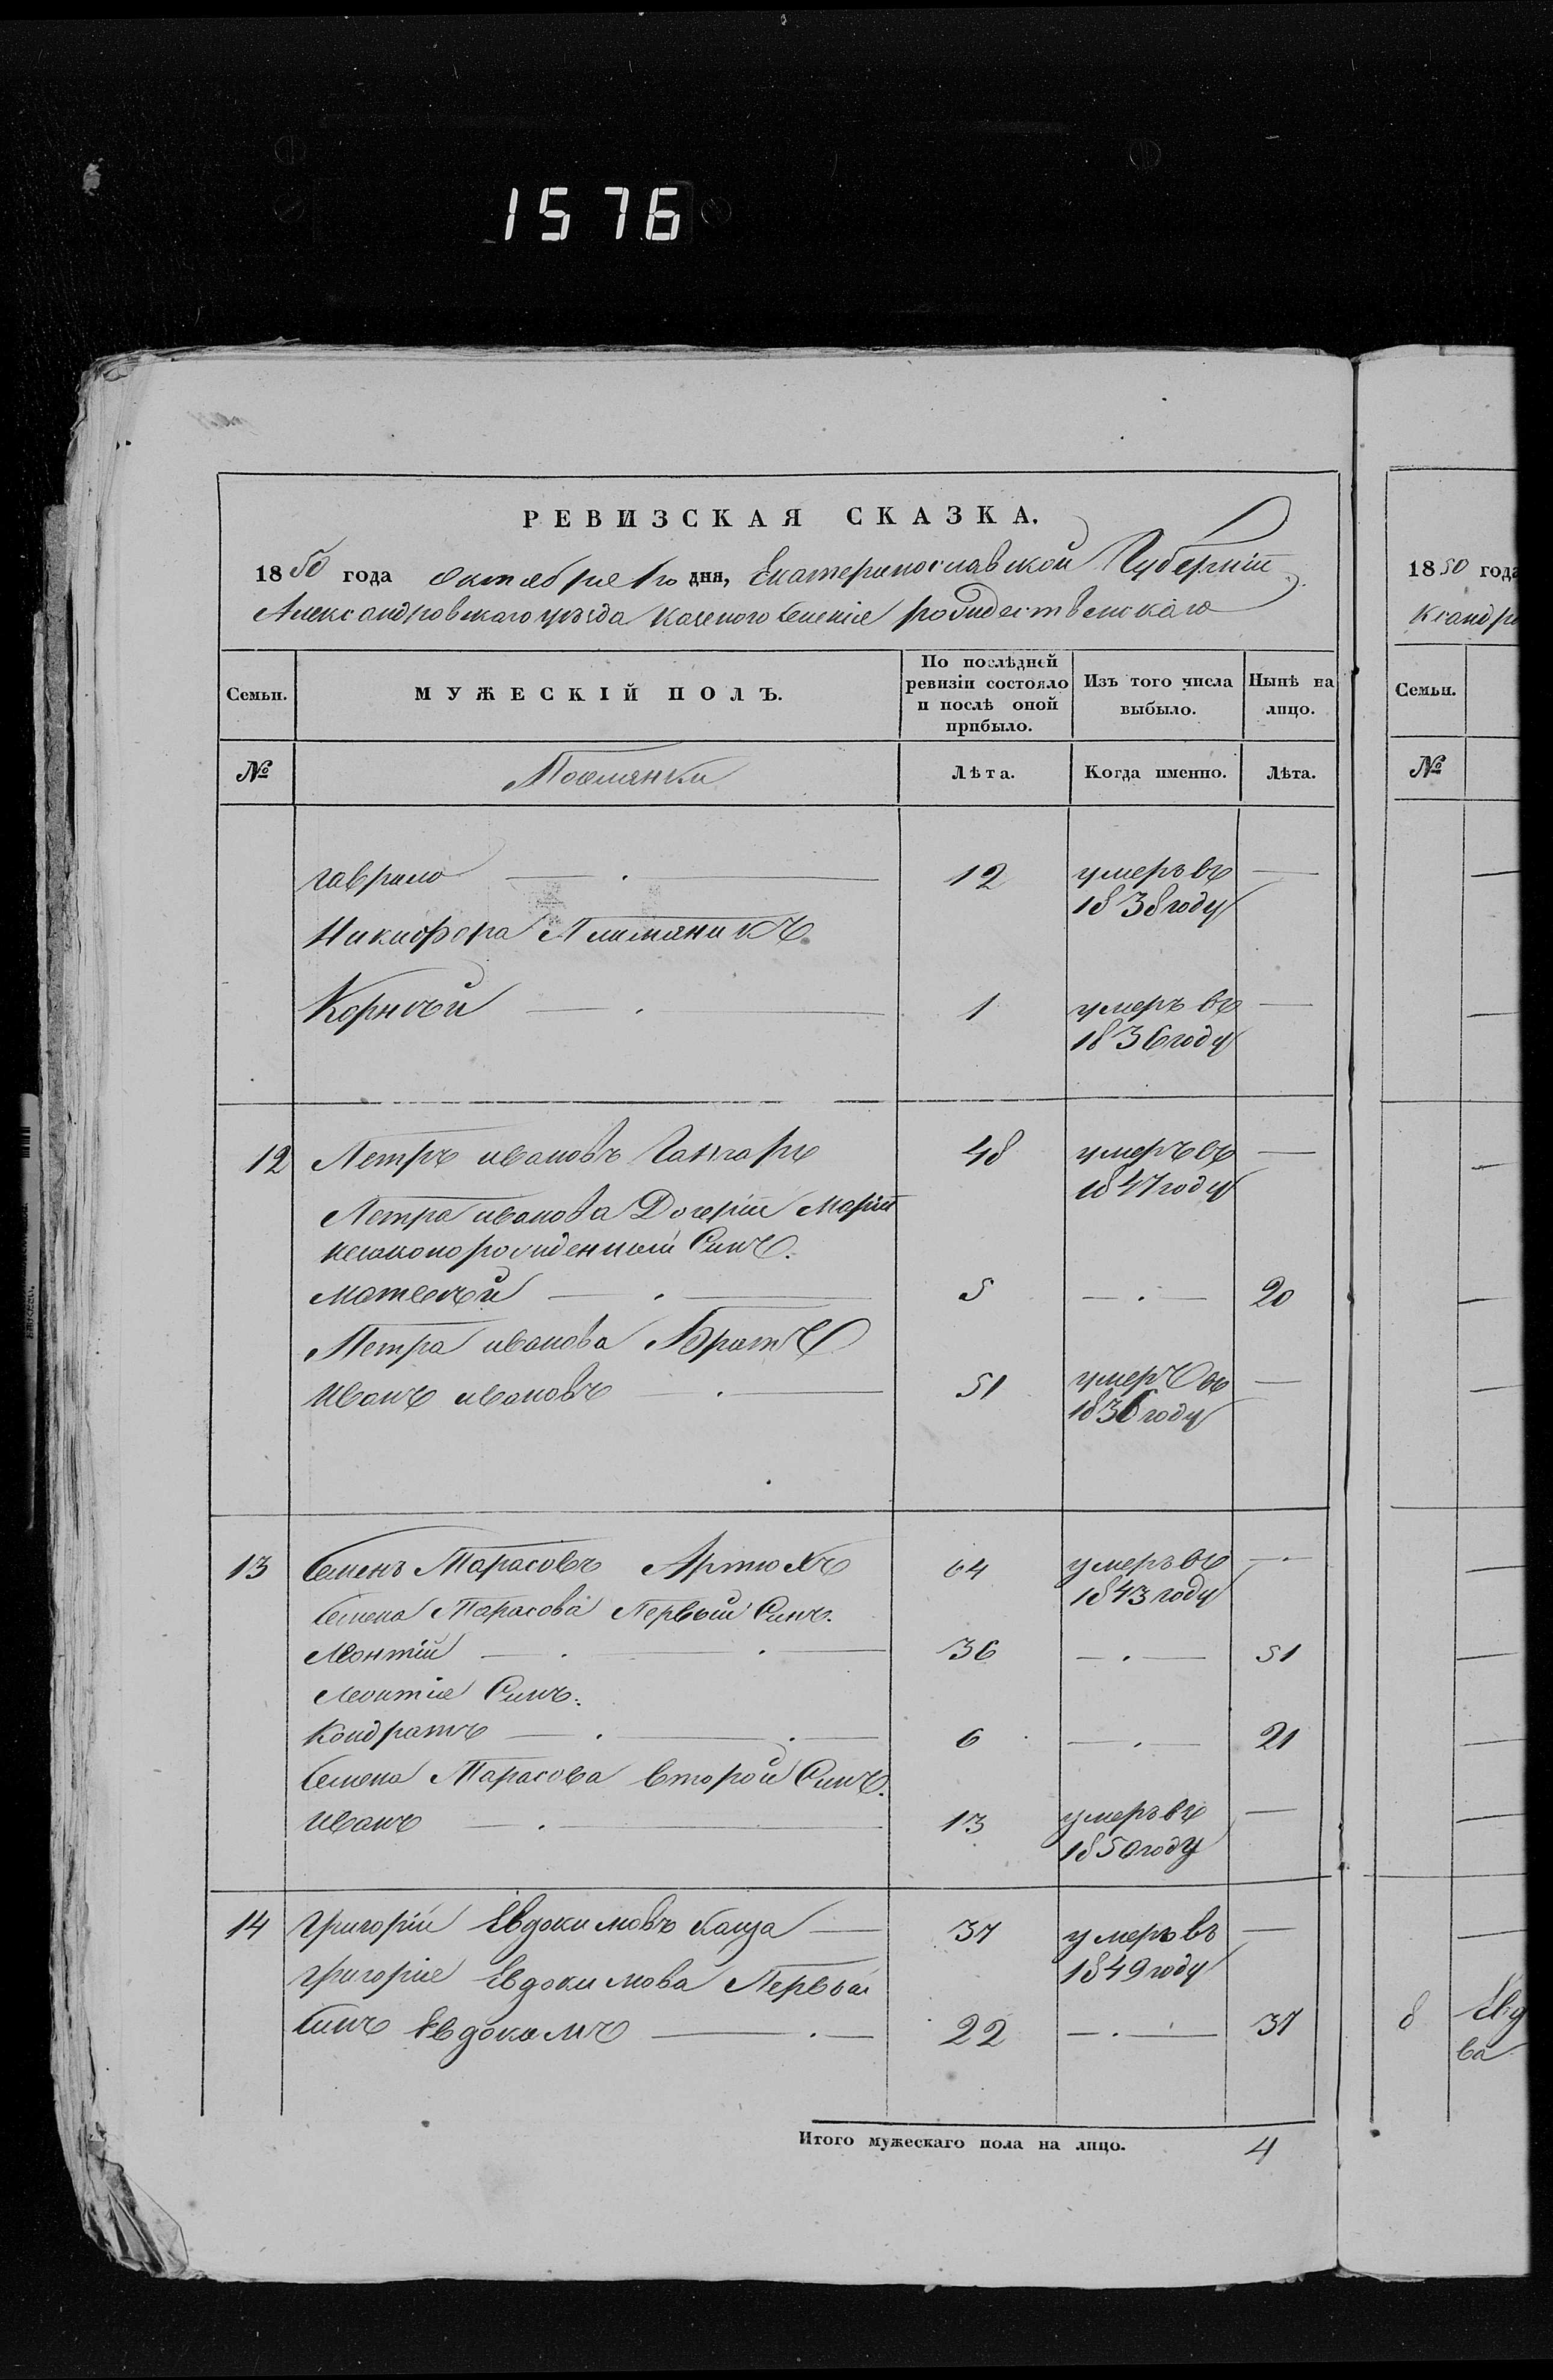 1576
РЕВИЗСКАЯ СКАЗКА.
1850 года октября 1го дня, Екатеринославской Губерніи
Александровскаго уѣзда казеного селенія рождественскаго
Семьи. МУЖЕСКІЙ ПОЛЪ. По послѣдней ревизіи состояло и послѣ оной прибыло. Изъ того числа выбыло. Нынѣ на лицо.
№ Лѣта. Когда именно. Лѣта.
гаврило — . — 12 умеръ въ —
1838 году
Никифора Плимяникъ
Корнѣй — . — 1 умеръ въ —
1836 году
12 Петръ ивановъ 48 умеръ въ —
1847 году
Петра иванова Дочеріи Маріи
незаконорожденный Синъ.
Матвѣй — . — 5 — . — 20
Петра иванова Братъ
Иванъ ивановъ — . — 51 умеръ въ —
1836 году
13 Семенъ Тарасовъ Артюхъ 64 умеръ въ — .
1843 году
Семена Тарасова Первый Синъ.
Леонтій — . — . — 36 — . — 51
Леонтія Синъ.
Кондратъ — . — . — 6 — . — 21
Семена Тарасова второй Синъ.
Иванъ — . — 13 умеръ въ —
1850 году
14 Григорій Евдокимовъ — 37 умеръ въ —
1849 году
Григорія Евдокимова Первый
Синъ Евдокимъ — . — 22 — . — 37
Итого мужескаго пола на лицо. 4
1850 года
ксандро
Семьи.
№
8 Евд
ва